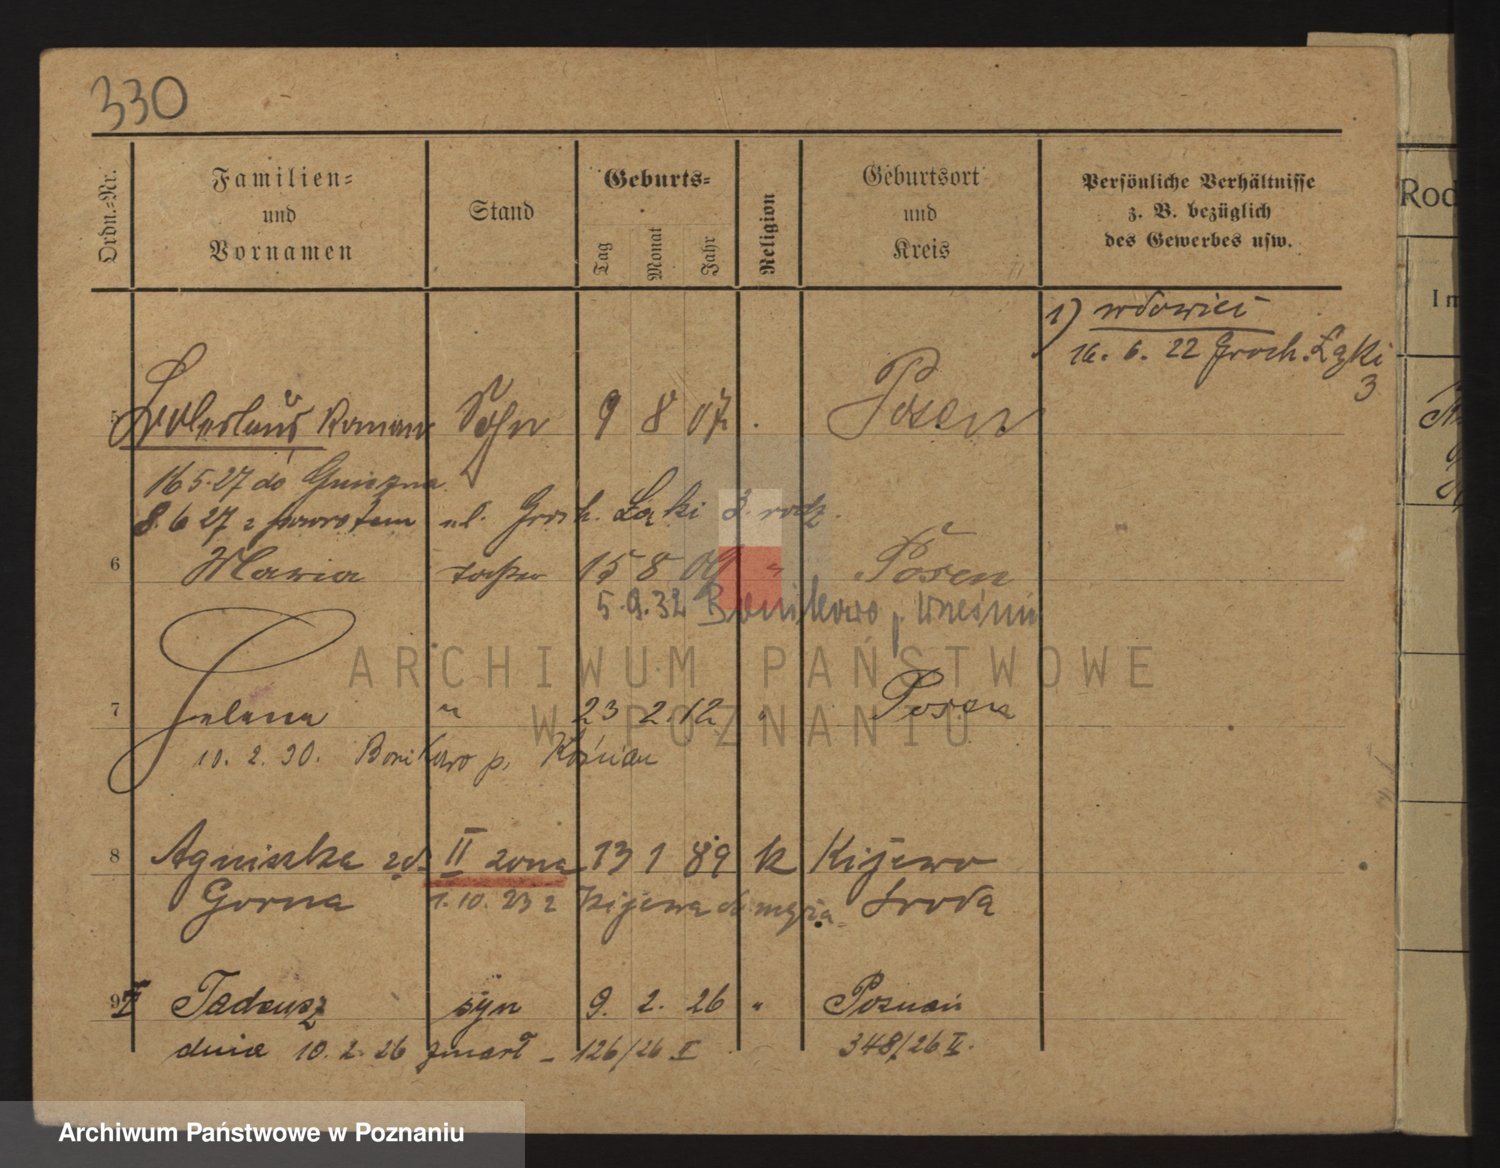 330
Ordn.-Nr.
Familien-
und
Vornamen
Stand
Geburts-
Tag Monat Jahr
Religion
Geburtsort
und
Kreis
Persönliche Verhältnisse
z. B. bezüglich
des Gewerbes usw.
1) wdowiec
16. 6. 22 Groch. Łąki
3
5 Boleslaus Roman Sohn 9 8 07 Posen
16 5 27 do Gniezna
8. 6 27 z powrotem ul. Groch. Łąki 3. rodz.
6 Maria Tochter 15 8 09 " Posen
5. 9. 32 Bonikowo p.
7 Helena " 23 2. 12 " Posen
10. 2. 30. Bonikowo p. Kościan
8 Agniszka zd. II zona 13 1 89 k Kijewo
Gorna 1. 10. 23 z Kijewa do męża Sroda
9 Tadeusz syn 9. 2. 26 " Poznań
dnia 10. 2. 26 zmarł - 126/26 II 348/26 II.
Rod
Im
ARCHIWUM PAŃSTWOWE
W POZNANIU
Archiwum Państwowe w Poznaniu